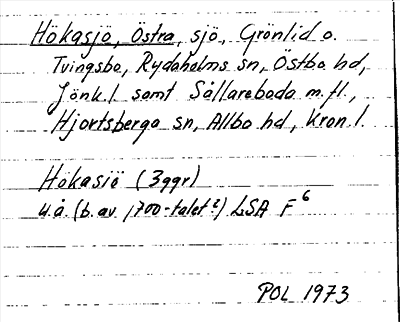 Hökasjö, Östra, sjö, Grönlid o.
Tvingsbo, Rydaholms sn, Östbo hd,
Jönk.l. samt Sällareboda m.fl.,
Hjortsberga sn, Allbo hd, Kron.l.
Hökasiö (3ggr)
u.å. (b. av 1700-talet?) LSA F6
POL 1973